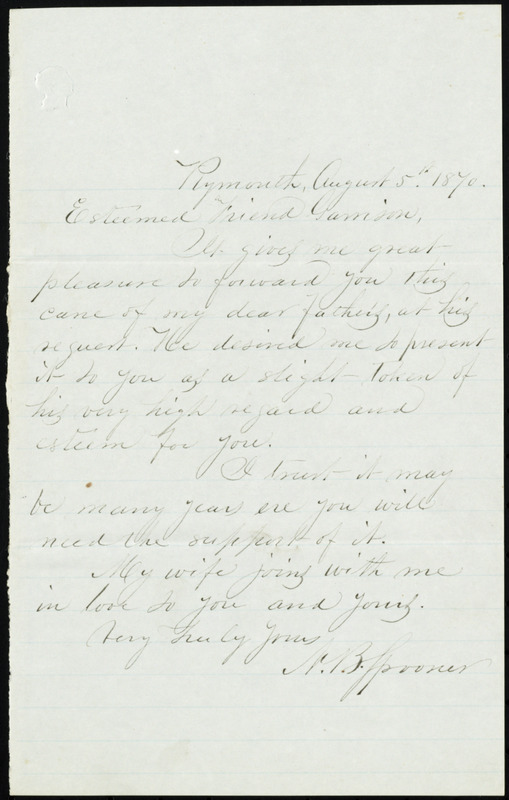 Plymouth, August 5th. 1870.
Esteemed Friend Garrison,
It gives me great
pleasure to forward you this
cane of my dear father's, at his
request. He desired me to present
it to you as a slight token of
his very high regard and
esteem for you.
I trust it may
be many years ere you will
need the support of it.
My wife joins with me
in love to you and yours.
Very truly yours
N. B. Spooner